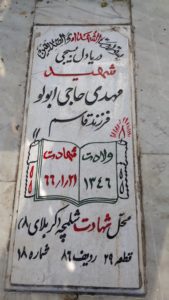 دریا دل بسیجی
شهید
مهدی حاجی ابولو
فرزند قاسم
ولادت
شهادت
۱۳۴۶
۶۶/۱/۲۱
محل شهادت شلمچه (کربلای ۸)
قطعه ۲۹ ردیف ۸۶ شماره ۱۸